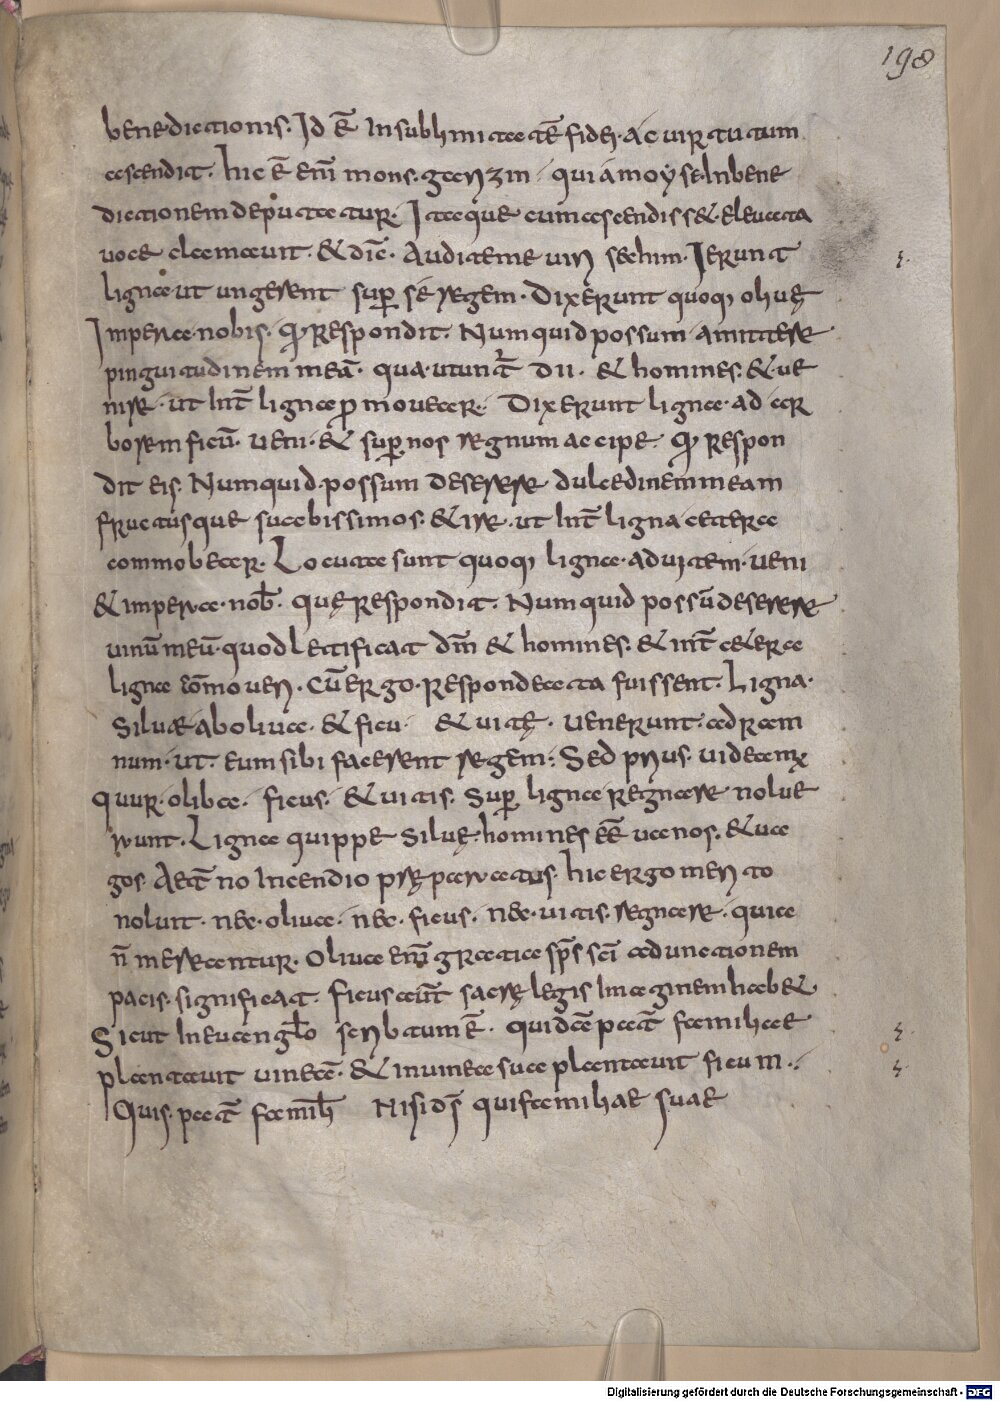 198
benedictionis. Id ē In sublimitatē fidei. ac uirtutum
ascendit. hic ē enī mons. garizin. qui a moyse. In bene
dictionem deputatur. Itaque cum ascendisset. eleuata
uoce clamauit. & dix̄. Audite me uiri sechim. Ierunt
ligna. ut ungerent sup̄ se regem. Dixerunt quoq; oliuę
Impera. nobis. Q; Respondit. Numquid possum amittere
pinguitudinem meā. qua. utunt᷑ dii. & homines. & ue
nire. ut Int̄ ligna p̄mouear. Dixerunt ligna. ad ar
borem ficū. ueni. & sup̄ nos regnum accipe. Q; Respon
dit eis. Numquid. possum deserere dulcedinem meam
fructusque suabissimos. & ire. ut Int̄ ligna cetera
commobear. Locuta sunt quoq; ligna. ad uitem. ueni
& impera. nob̄. quę Respondit. Numquid possū deserere
uinū meū. quod letificat dm̄ & homines. & int̄ cetera
ligna com̄oueri. Cū ergo. Respondeata fuissent. Ligna.
siluae ab oliua. & ficu. & uitę. uenerunt. ad ram
num. ut. eum sibi facerent regem. Sed prius. uideam;
quur. oliba. ficus. & uitis. Sup̄ ligna regnare nolue
runt. Ligna quippe siluę. homines eē uanos. & ua
gos. Aet̄no Incendio pręparatus. hic ergo merito
noluit. nec. oliua. nec. ficus. nec. uitis. regnare. quia
n̄ merearentur. Oliua enī gratia sp̄s sc̄i ad unctionem
pacis. significat. ficus aūt sacrę legis Imaginem habe&
Sicut In euangl̄o scribtum ē. quidā pat̄ familiae
plantauit uineā. & in uinea sua plantauit ficum.
Quis. pat̄ famil̄i Nisi d̄s qui familiae suae